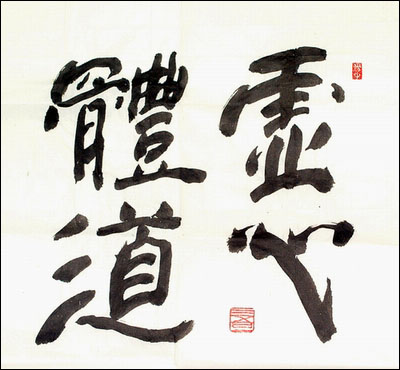 虛心
體道